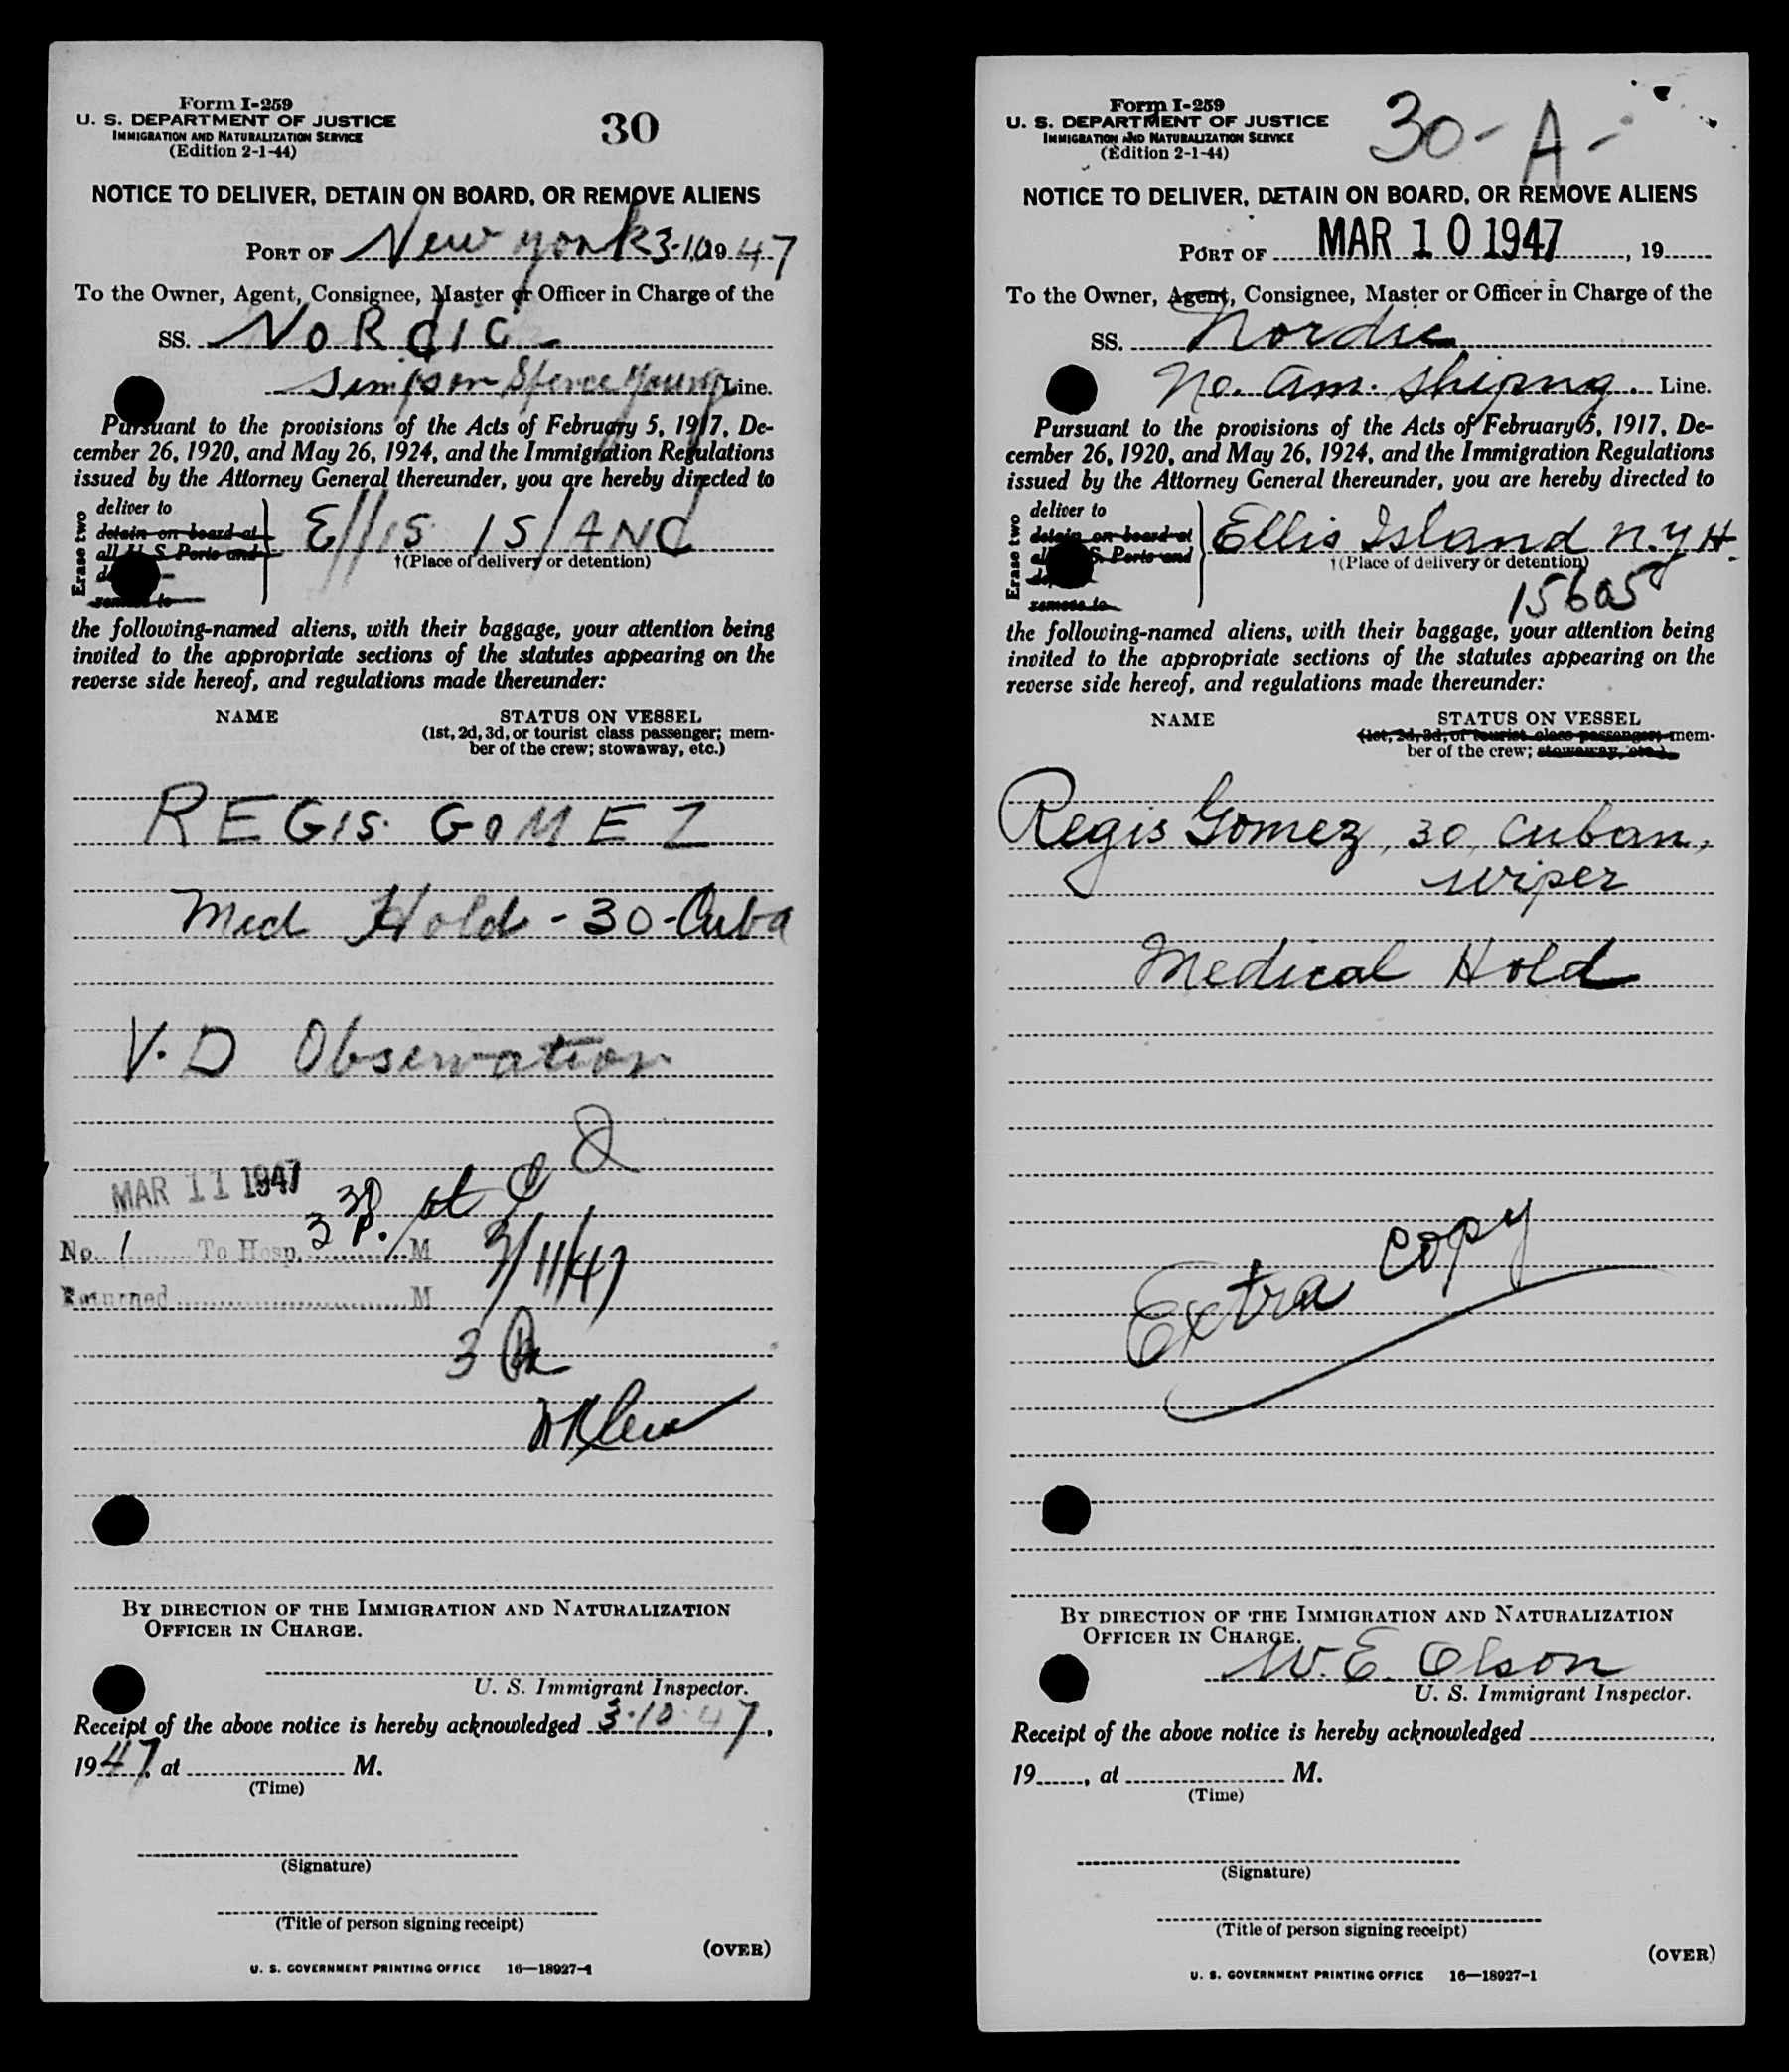 Form I-259
U. S. DEPARTMENT OF JUSTICE
IMMIGRATION AND NATURALIZATION SERVICE
(Edition 2-1-44)
30
NOTICE TO DELIVER, DETAIN ON BOARD, OR REMOVE ALIENS
PORT OF New York 3-10 19 47
To the Owner, Agent, Consignee, Master or Officer in Charge of the
SS. NORdIC
Simpson Spence Young Line.
Pursuant to the provisions of the Acts of February 5, 1917, De-
cember 26, 1920, and May 26, 1924, and the Immigration Regulations
issued by the Attorney General thereunder, you are hereby directed to
Erase two
deliver to
detain on board at
all U. S. Ports and
remove to
Ellis ISLANd
†(Place of delivery or detention)
the following-named aliens, with their baggage, your attention being
invited to the appropriate sections of the statutes appearing on the
reverse side hereof, and regulations made thereunder:
NAME
STATUS ON VESSEL
(1st, 2d, 3d, or tourist class passenger; mem-
ber of the crew; stowaway, etc.)
REGIS GOMEZ
Med Hold - 30 - Cuba
V. D Observation
MAR 11 1947
No. 1 To Hosp. 3 30 P. M
3/11/47
Returned M
BY DIRECTION OF THE IMMIGRATION AND NATURALIZATION
OFFICER IN CHARGE.
U. S. Immigrant Inspector.
Receipt of the above notice is hereby acknowledged 3-10-47,
19 47, at M.
(Time)
(Signature)
(Title of person signing receipt)
(OVER)
U. S. GOVERNMENT PRINTING OFFICE 16—18927-1
Form I-259
U. S. DEPARTMENT OF JUSTICE
IMMIGRATION AND NATURALIZATION SERVICE
(Edition 2-1-44)
30-A-
NOTICE TO DELIVER, DETAIN ON BOARD, OR REMOVE ALIENS
PORT OF MAR 10 1947, 19
To the Owner, Agent, Consignee, Master or Officer in Charge of the
SS. Nordic
No. Am. Shipng. Line.
Pursuant to the provisions of the Acts of February 5, 1917, De-
cember 26, 1920, and May 26, 1924, and the Immigration Regulations
issued by the Attorney General thereunder, you are hereby directed to
Erase two
deliver to
detain on board at
all U. S. Ports and
remove to
Ellis Island N.Y.H.
†(Place of delivery or detention)
15605
the following-named aliens, with their baggage, your attention being
invited to the appropriate sections of the statutes appearing on the
reverse side hereof, and regulations made thereunder:
NAME
STATUS ON VESSEL
(1st, 2d, 3d, or tourist class passenger; mem-
ber of the crew; stowaway, etc.)
Regis Gomez, 30, Cuban,
wiper
Medical Hold
Extra copy
BY DIRECTION OF THE IMMIGRATION AND NATURALIZATION
OFFICER IN CHARGE.
W. E. Olson
U. S. Immigrant Inspector.
Receipt of the above notice is hereby acknowledged
19, at M.
(Time)
(Signature)
(Title of person signing receipt)
(OVER)
U. S. GOVERNMENT PRINTING OFFICE 16—18927-1